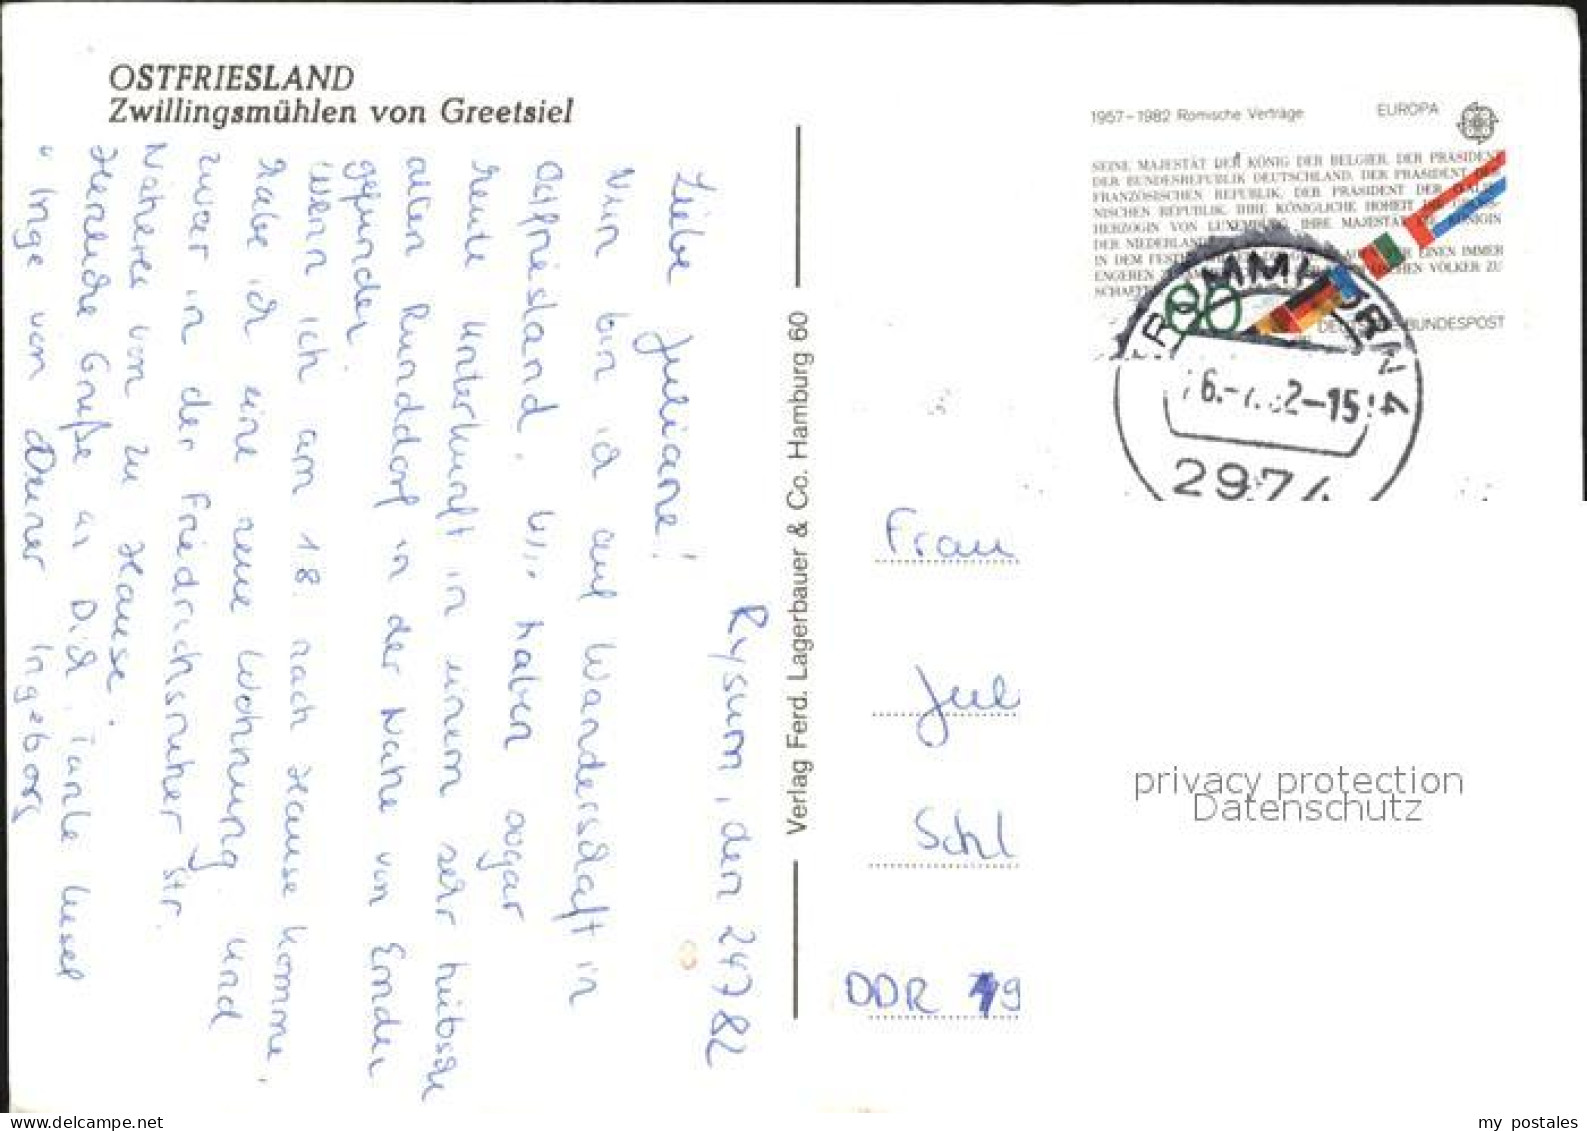 OSTFRIESLAND
Zwillingsmühlen von Greetsiel
Rysum, den 24.7.82
Liebe Juliane!
Nun bin ich auf Wanderschaft in
Ostfriesland. Wir haben sogar
heute Unterkunft in einem sehr hübschen
alten Runddorf in der Nähe von Emden
gefunden.
Wenn ich am 18. nach Hause komme,
habe ich eine neue Wohnung und
zwar in der Friedrichsruher Str.
Näheres von zu Hause.
Herzliche Grüße an Dich, Tante Liesel
u. Inge von Deiner Ingeborg
Verlag Ferd. Lagerbauer & Co. Hamburg 60
1957–1982 Römische Verträge
EUROPA
SEINE MAJESTÄT DER KÖNIG DER BELGIER, DER PRÄSIDENT
DER BUNDESREPUBLIK DEUTSCHLAND, DER PRÄSIDENT DER
FRANZÖSISCHEN REPUBLIK, DER PRÄSIDENT DER ITALIE-
NISCHEN REPUBLIK, IHRE KÖNIGLICHE HOHEIT DIE
HERZOGIN VON LUXEMBURG, IHRE MAJESTÄT DIE KÖNIGIN
DER NIEDERLANDE
IN DEM FESTEN EINEN IMMER
ENGEREN VÖLKER ZU
SCHAFFEN
80
DEUTSCHE BUNDESPOST
KRUMMHÖRN 1
26.-7.82-15
2974
Frau
Jul
Schl
DDR 49
privacy protection
Datenschutz
my postales